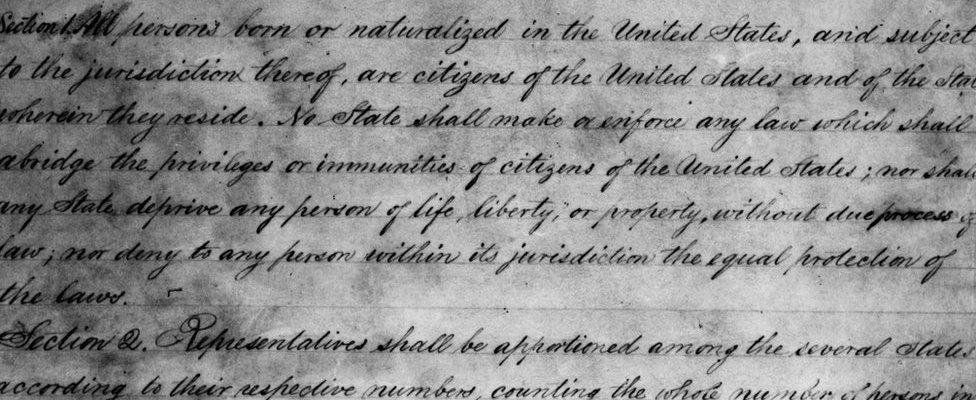 Section 1. All persons born or naturalized in the United States, and subject
to the jurisdiction thereof, are citizens of the United States and of the Stat
wherein they reside. No State shall make or enforce any law which shall
abridge the privileges or immunities of citizens of the United States; nor shall
any State deprive any person of life, liberty, or property, without due process of
law; nor deny to any person within its jurisdiction the equal protection of
the laws.
Section 2. Representatives shall be apportioned among the several States
according to their respective numbers, counting the whole number of persons in